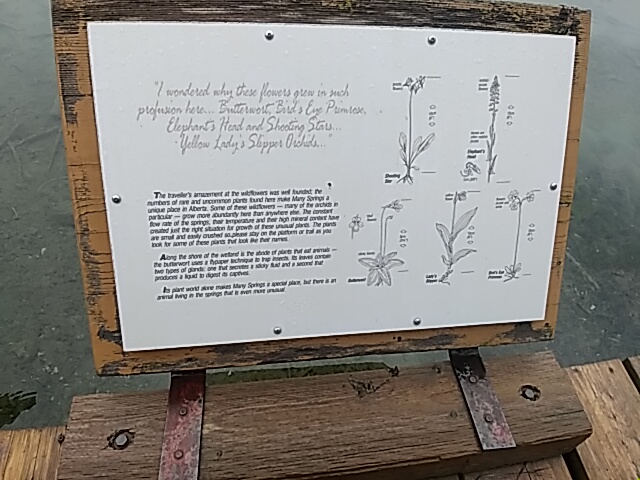 "I wondered why these flowers grew in such
profusion here... Butterwort, Bird's Eye Primrose,
Elephant's Head and Shooting Stars...
Yellow Lady's Slipper Orchids..."
The traveller's amazement at the wildflowers was well founded; the
numbers of rare and uncommon plants found here make Many Springs a
unique place in Alberta. Some of these wildflowers — many of the orchids in
particular — grow more abundantly here than anywhere else. The constant
flow rate of the springs, their temperature and their high mineral content have
created just the right situation for growth of these unusual plants. The plants
are small and easily crushed so please stay on the platform or trail as you
look for some of these plants that look like their names.
Along the shore of the wetland is the abode of plants that eat animals —
the butterwort uses a flypaper technique to trap insects. Its leaves contain
two types of glands: one that secretes a sticky fluid and a second that
produces a liquid to digest its captives.
Its plant world alone makes Many Springs a special place, but there is an
animal living in the springs that is even more unusual.
Shooting
Star
Elephant's
Head
Butterwort
Lady's
Slipper
Bird's Eye
Primrose